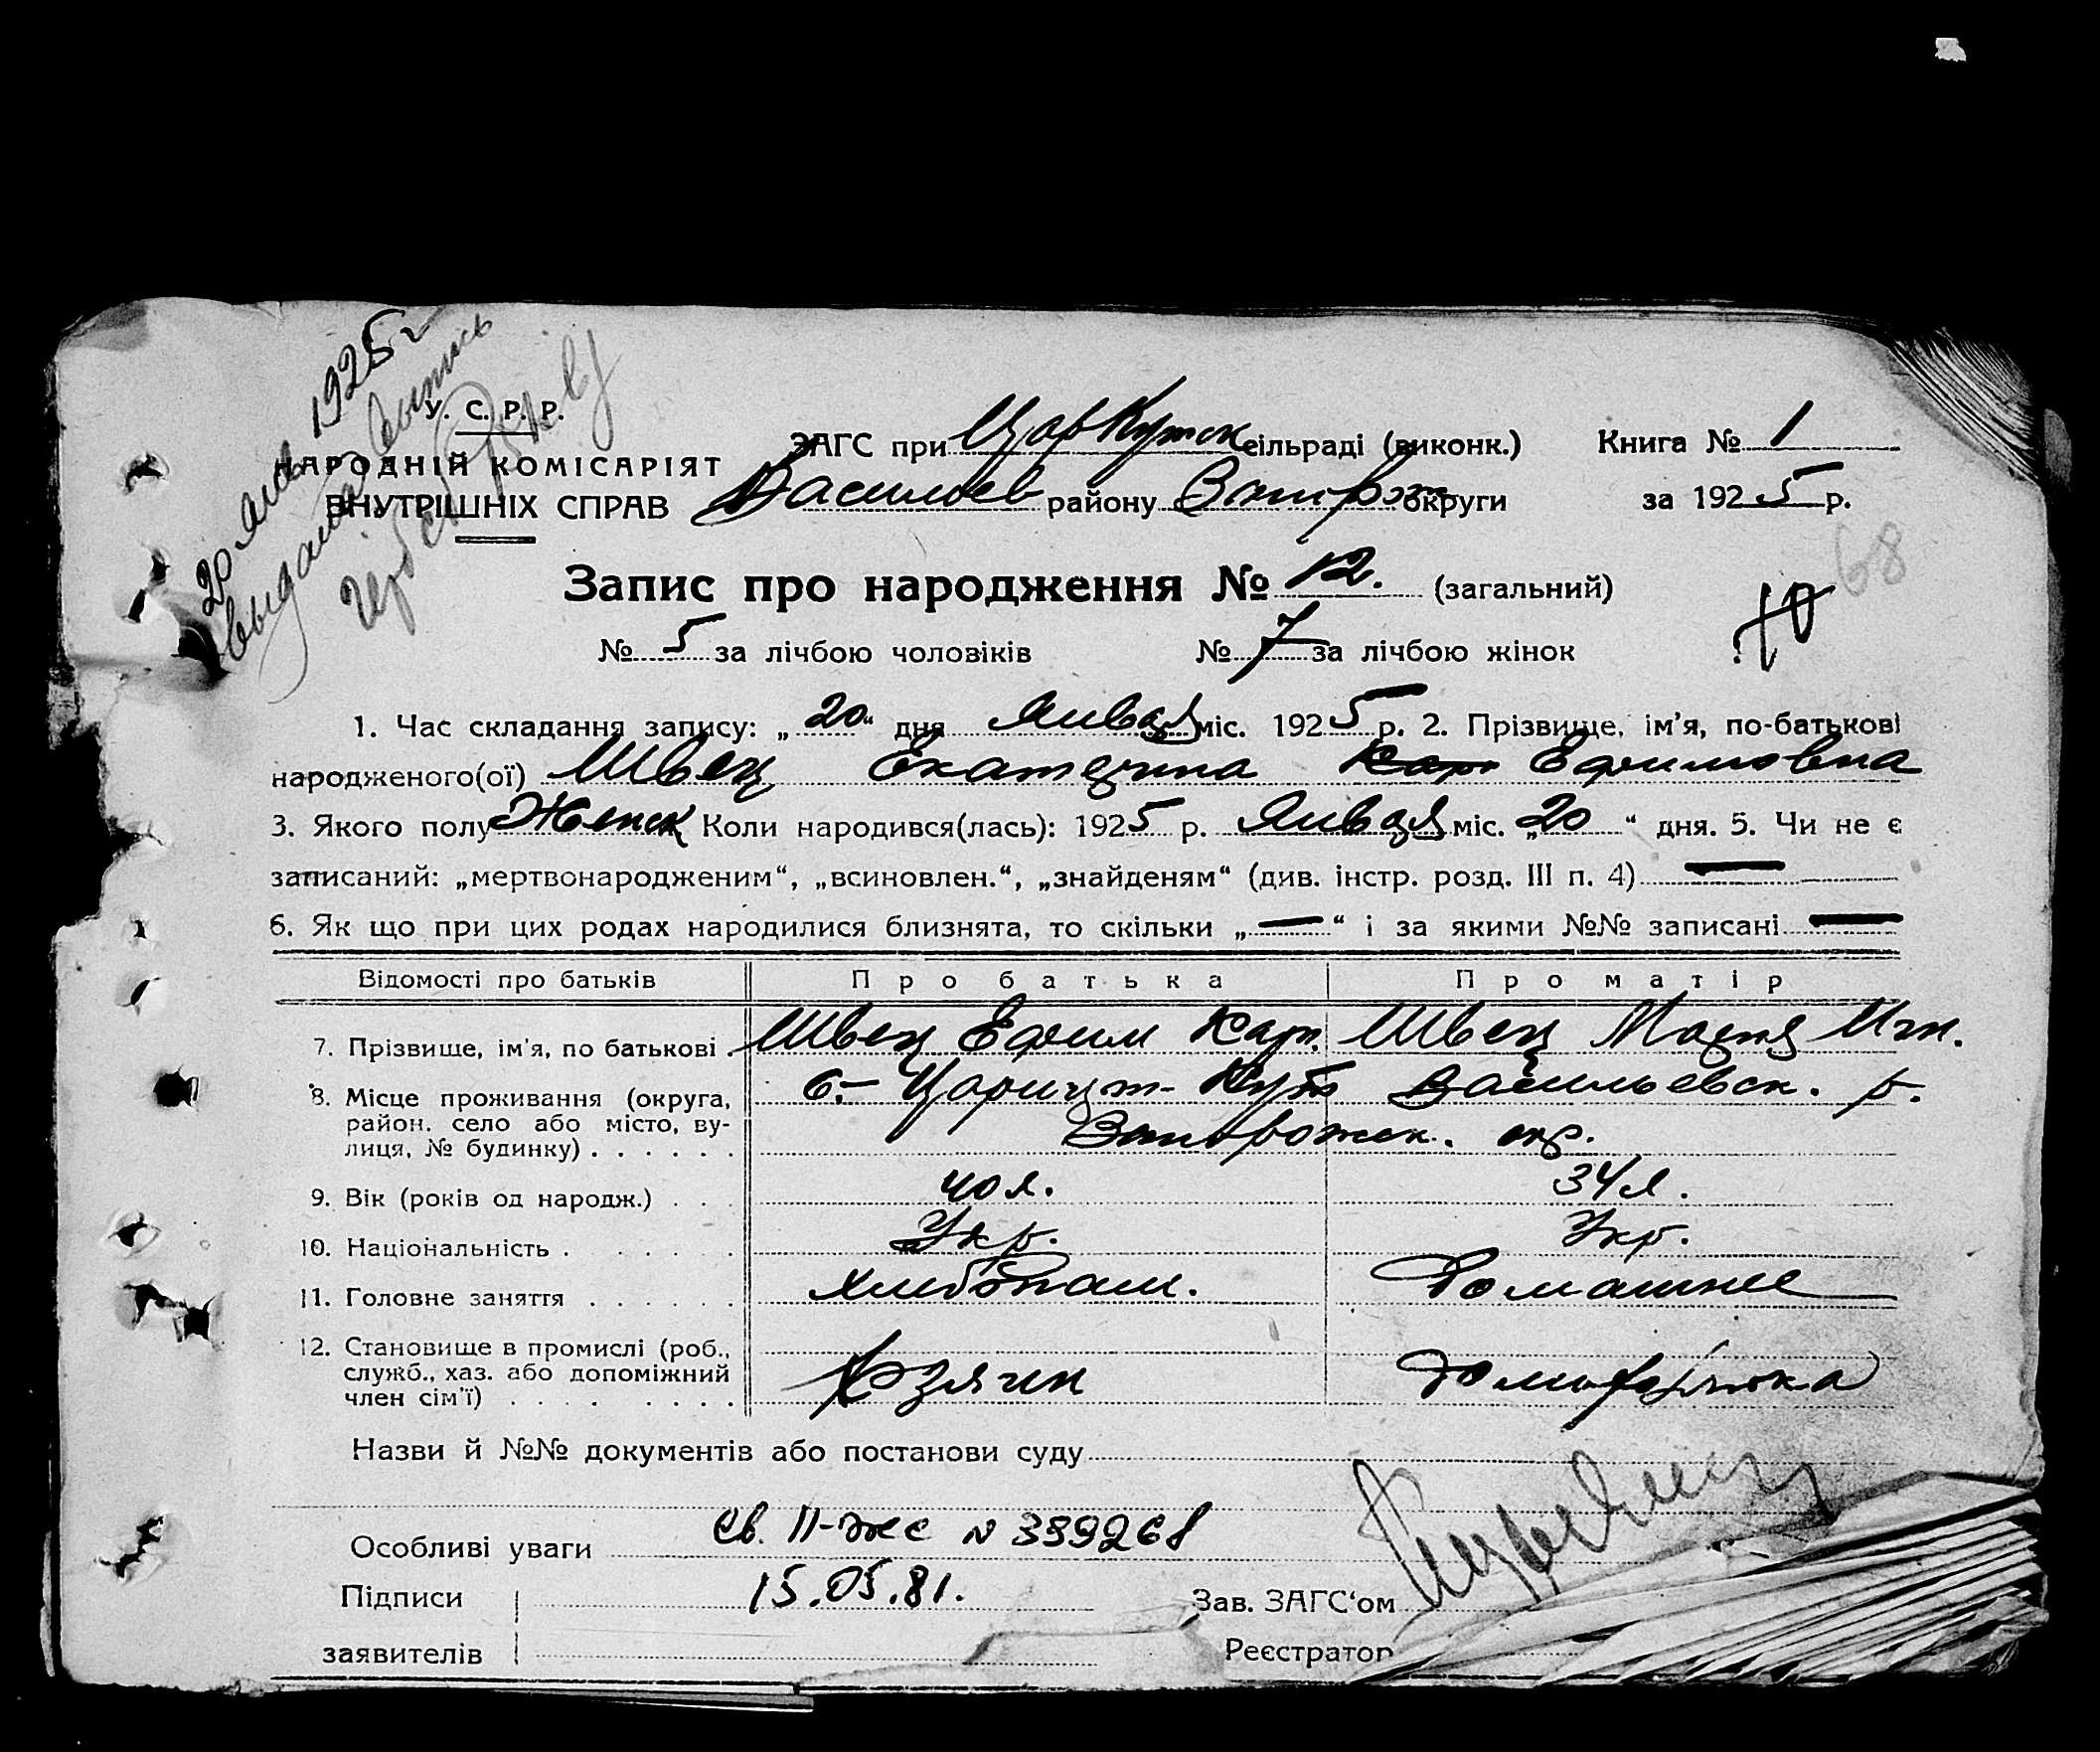 20 Янв 1925 г
выдана выпись
У. С. Р. Р.
НАРОДНІЙ КОМІСАРІЯТ
ВНУТРІШНІХ СПРАВ
ЗАГС при ЦарКутск сільраді (виконк.) Книга № 1
Васильев району Запорож округи за 1925 р.
68
Запис про народження № 12. (загальний)
№ 5 за лічбою чоловіків № 7 за лічбою жінок
1. Час складання запису: „20“ дня Января міс. 1925 р. 2. Прізвище, ім'я, по-батькові
народженого(ої) Швец Екатерина Карп Ефимовна
3. Якого полу Женск Коли народився(лась): 1925 р. Января міс. „20“ дня. 5. Чи не є
записаний: „мертвонародженим“, „всиновлен.“, „знайденям“ (див. інстр. розд. III п. 4) —
6. Як що при цих родах народилися близнята, то скільки „—“ і за якими №№ записані —
Відомості про батьків Про батька Про матір
7. Прізвище, ім'я, по батькові . Швец Ефим Карп. Швец Мария Игн.
8. Місце проживання (округа, район. село або місто, вулиця, № будинку) . . . . . . с.- Царицт- Кут Васильевск. р.
Запорожск. окр.
9. Вік (років од народж.) . . . 40 л. 34 л.
10. Національність . . . . . . Укр. Укр.
11. Головне заняття . . . . . . хлибопаш. Домашнее
12. Становище в промислі (роб., служб., хаз. або допоміжний член сім'ї) . . . . . . . . Хозяин
Назви й №№ документів або постанови суду
Особливі уваги св. II-жс № 339268
Підписи 15.05.81. Зав. ЗАГС‘ом
заявителів Реєстратор